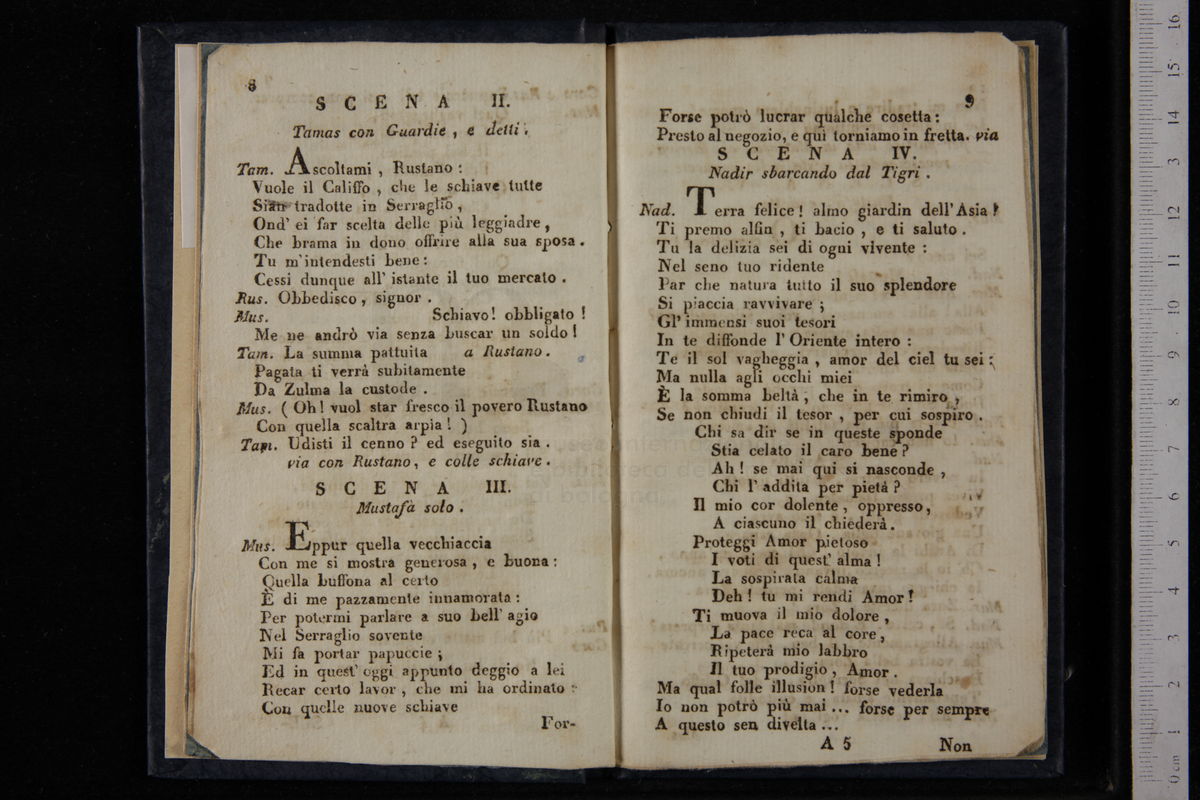 8
SCENA II.
Tamas con Guardie, e detti.
Tam. Ascoltami, Rustano:
Vuole il Califfo, che le schiave tutte
Sian tradotte in Serraglio,
Ond' ei far scelta delle più leggiadre,
Che brama in dono offrire alla sua sposa.
Tu m'intendesti bene:
Cessi dunque all' istante il tuo mercato.
Rus. Obbedisco, signor.
Mus. Schiavo! obbligato!
Me ne andrò via senza buscar un soldo!
Tam. La summa pattuita a Rustano.
Pagata ti verrà subitamente
Da Zulma la custode.
Mus. (Oh! vuol star fresco il povero Rustano
Con quella scaltra arpìa!)
Tam. Udisti il cenno? ed eseguito sia.
via con Rustano, e colle schiave.
SCENA III.
Mustafà solo.
Mus. Eppur quella vecchiaccia
Con me si mostra generosa, e buona:
Quella buffona al certo
È di me pazzamente innamorata:
Per potermi parlare a suo bell' agio
Nel Serraglio sovente
Mi fa portar papuccie;
Ed in quest' oggi appunto deggio a lei
Recar certo lavor, che mi ha ordinato:
Con quelle nuove schiave
For-
9
Forse potrò lucrar qualche cosetta:
Presto al negozio, e quì torniamo in fretta. via
SCENA IV.
Nadir sbarcando dal Tigri.
Nad. Terra felice! almo giardin dell'Asia!
Ti premo alfin, ti bacio, e ti saluto.
Tu la delizia sei di ogni vivente:
Nel seno tuo ridente
Par che natura tutto il suo splendore
Si piaccia ravvivare;
Gl' immensi suoi tesori
In te diffonde l' Oriente intero:
Te il sol vagheggia, amor del ciel tu sei:
Ma nulla agli occhi miei
È la somma beltà, che in te rimiro,
Se non chiudi il tesor, per cui sospiro.
Chi sa dir se in queste sponde
Stia celato il caro bene?
Ah! se mai qui si nasconde,
Chi l' addita per pietà?
Il mio cor dolente, oppresso,
A ciascuno il chiederà.
Proteggi Amor pietoso
I voti di quest' alma!
La sospirata calma
Deh! tu mi rendi Amor!
Ti muova il mio dolore,
La pace reca al core,
Ripeterà mio labbro
Il tuo prodigio, Amor.
Ma qual folle illusion! forse vederla
Io non potrò più mai... forse per sempre
A questo sen divelta...
A 5 Non